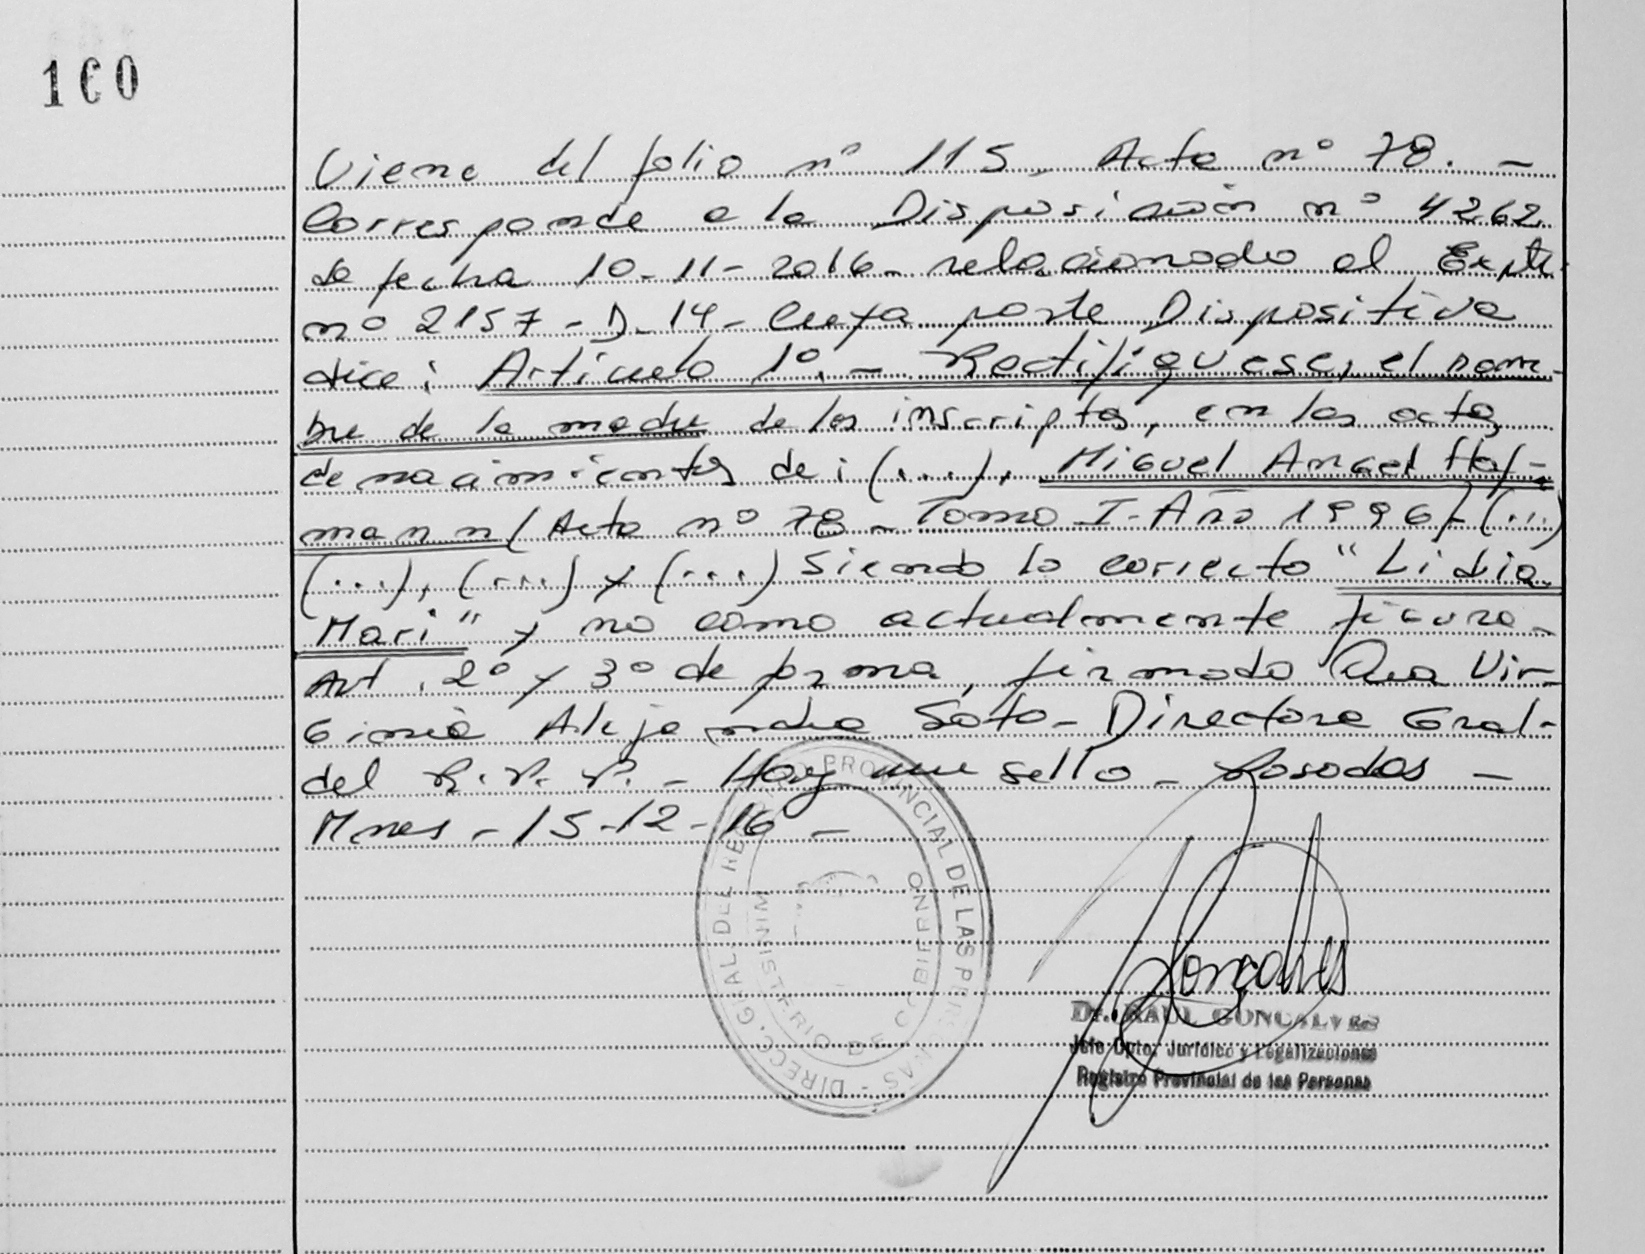 160
Viene del folio nº 115, Acta nº 78. -
Corresponde a la Disposición nº 4262
de fecha 10-11-2016- relacionado al Expte.
nº 2157-D-14- Cuya parte Dispositiva
dice: Artículo 1º. - Rectifíquese, el nom-
bre de la madre de los inscriptos, en las actas
de nacimientos de: (...), Miguel Angel Haf-
mann (Acta nº 78 - Tomo I- Año 1996)- (...)
(...), (...) y (...) Siendo lo correcto "Lidia
Mari" y no como actualmente figura.-
Art. 2º y 3º de forma, firmado Dra Vir-
ginia Alejandra Soto- Directora Gral-
del R.P.P. - Hay un sello - Posadas -
Mnes - 15-12-16 -
DIRECC. GRAL. DEL REGISTRO PROVINCIAL DE LAS PERSONAS -
MINISTERIO DE GOBIERNO
Gonçalves
Dr. RAUL GONCALVES
Jefe Dpto. Jurídico y Legalizaciones
Registro Provincial de las Personas